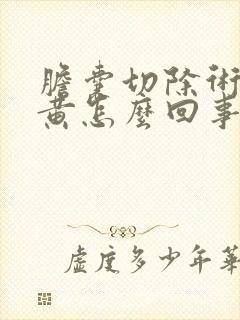 膽囊切除術
黃怎麼回事
虛度多少年華